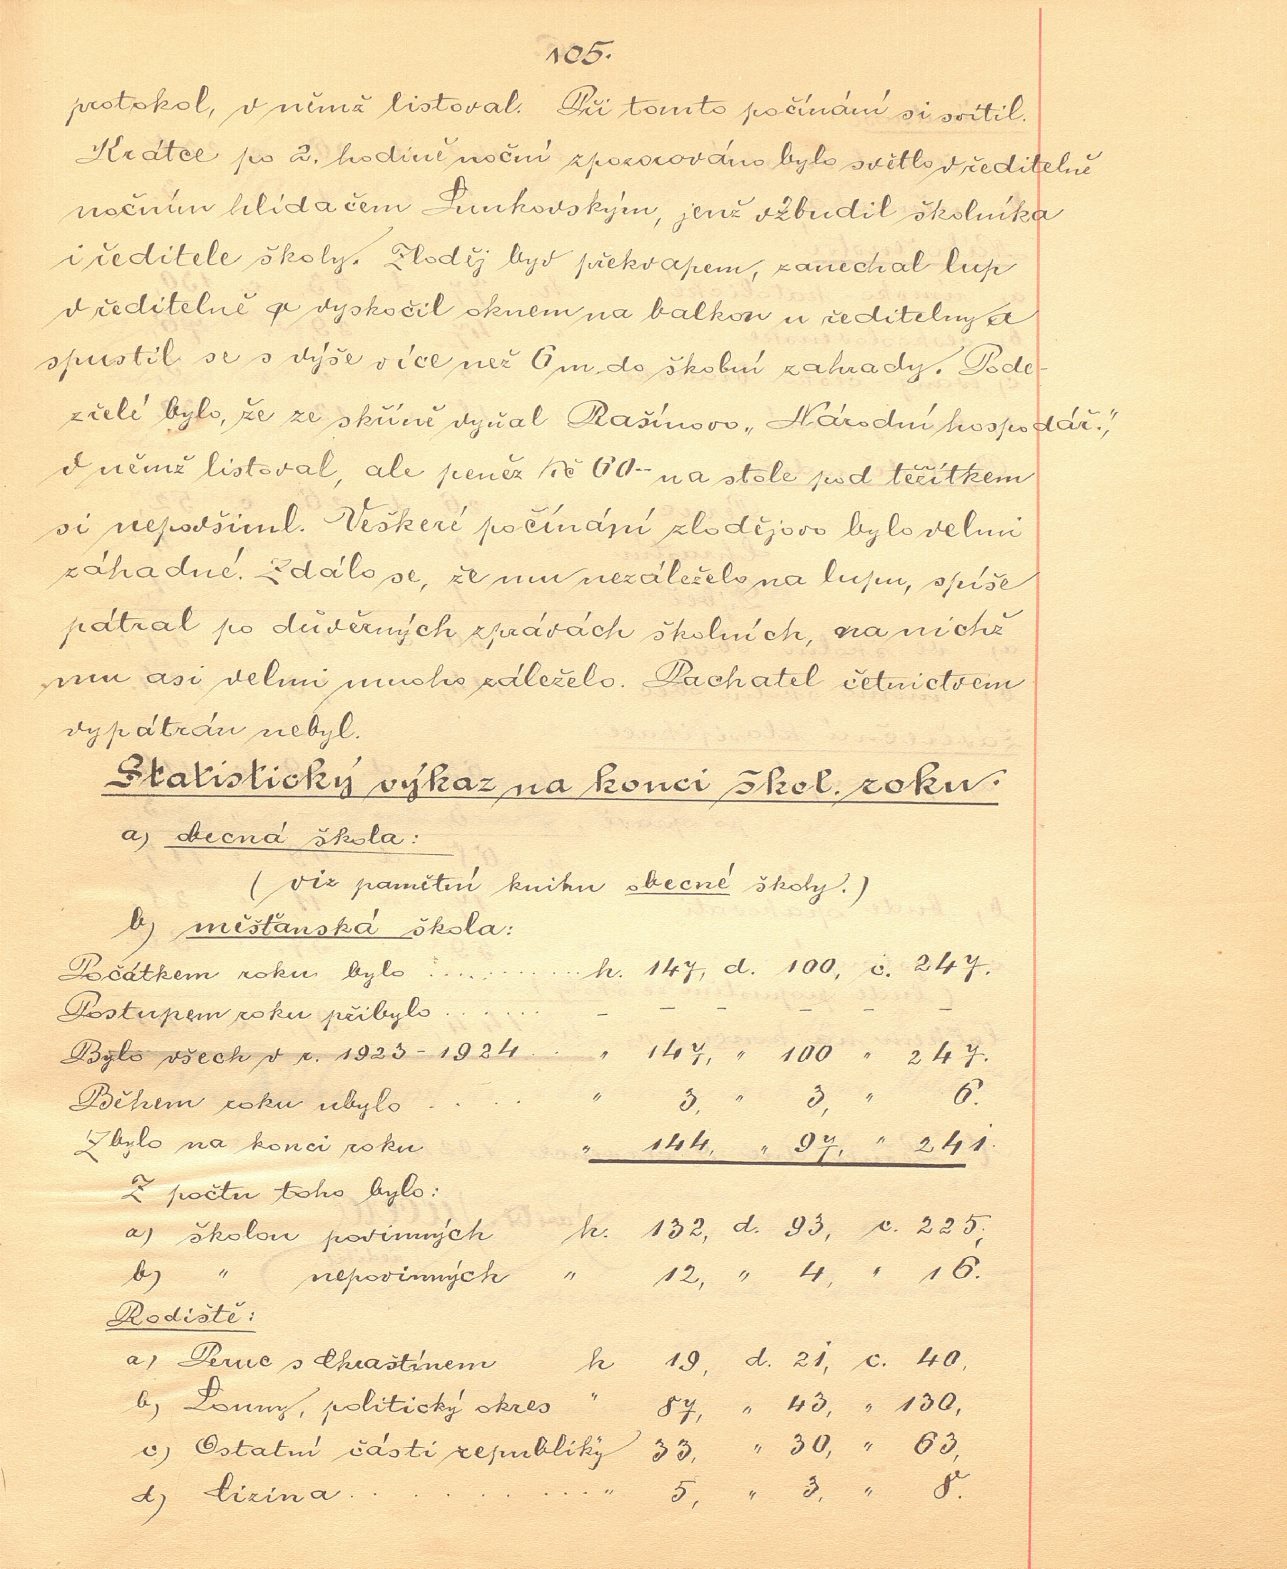 105.
protokol, v němž listoval. Při tomto počínání si svítil.
Krátce po 2. hodině noční zpozorováno bylo světlo v ředitelně
nočním hlídačem Lunkovským, jenž vzbudil školníka
i ředitele školy. Zloděj byv překvapem, zanechal lup
v ředitelně a vyskočil oknem na balkon u ředitelny a
spustil se s výše více než 6 m do školní zahrady. Pode-
zřelé bylo, že ze skříně vyňal Rašínovo „Národní hospodář.",
v němž listoval, ale peněz Kč 60-- na stole pod těžítkem
si nepovšiml. Veškeré počínání zlodějovo bylo velmi
záhadné. Zdálo se, že mu nezáleželo na lupu, spíše
pátral po důvěrných zprávách školních, na nichž
mu asi velmi mnoho záleželo. Pachatel četnictvem
vypátrán nebyl.
Statistický výkaz na konci škol. roku.
a) obecná škola:
(viz pamětní knihu obecné školy.)
b) měšťanská škola:
Počátkem roku bylo : ........... h. 147, d. 100, c. 247.
Postupem roku přibylo ....... – – – – – –
Bylo všech v r. 1923-1924 .. " 147, " 100 " 247.
Během roku ubylo .... " 3, " 3, " 6.
Zbylo na konci roku " 144, " 97, " 241.
Z počtu toho bylo:
a) školou povinných h. 132, d. 93, c. 225,
b) " nepovinných " 12, " 4, " 16.
Rodiště:
a) Peruc s Chraštínem h 19, d. 21, c. 40,
b) Louny, politický okres " 87, " 43, " 130,
c) Ostatní části republiky 33, " 30, " 63,
d) Cizina ......... " 5, " 3, " 8.